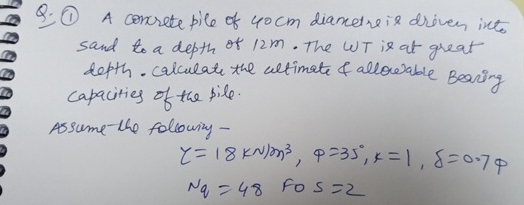 Q. ① A concrete pile of 40cm diametre is driven into
sand to a depth of 12m. The WT is at great
depth. Calculate the ultimate & allowable Bearing
Capacities of the pile.
Assume the following -
γ = 18 KN/m³, φ=35°, K=1, δ=0.7φ
Nq = 48 FOS=2